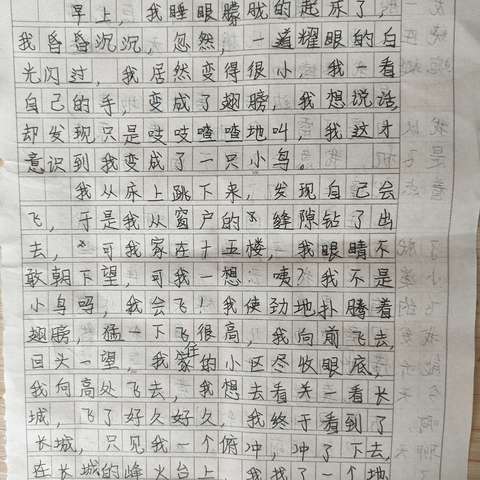 早上，我睡眼朦胧的起床了，
我昏昏沉沉，忽然，一道耀眼的白
光闪过，我居然变得很小，我一看
自己的手，变成了翅膀，我想说话，
却发现只是吱吱喳喳地叫，我这才
意识到我变成了一只小鸟。
我从床上跳下来，发现自己会
飞，于是我从窗户的缝隙钻了出
去，可我家在十五楼，我眼睛不
敢朝下望，可我一想：咦？我不是
小鸟吗，我会飞！我使劲地扑腾着
翅膀，猛一下飞很高，我向前飞去，
回头一望，我家住的小区尽收眼底，
我向高处飞去，我想去看关一看长
城，飞了好久好久，我终于看到了
长城，只见我一个俯冲，冲了下去，
在长城的烽火台上，我找了一个地